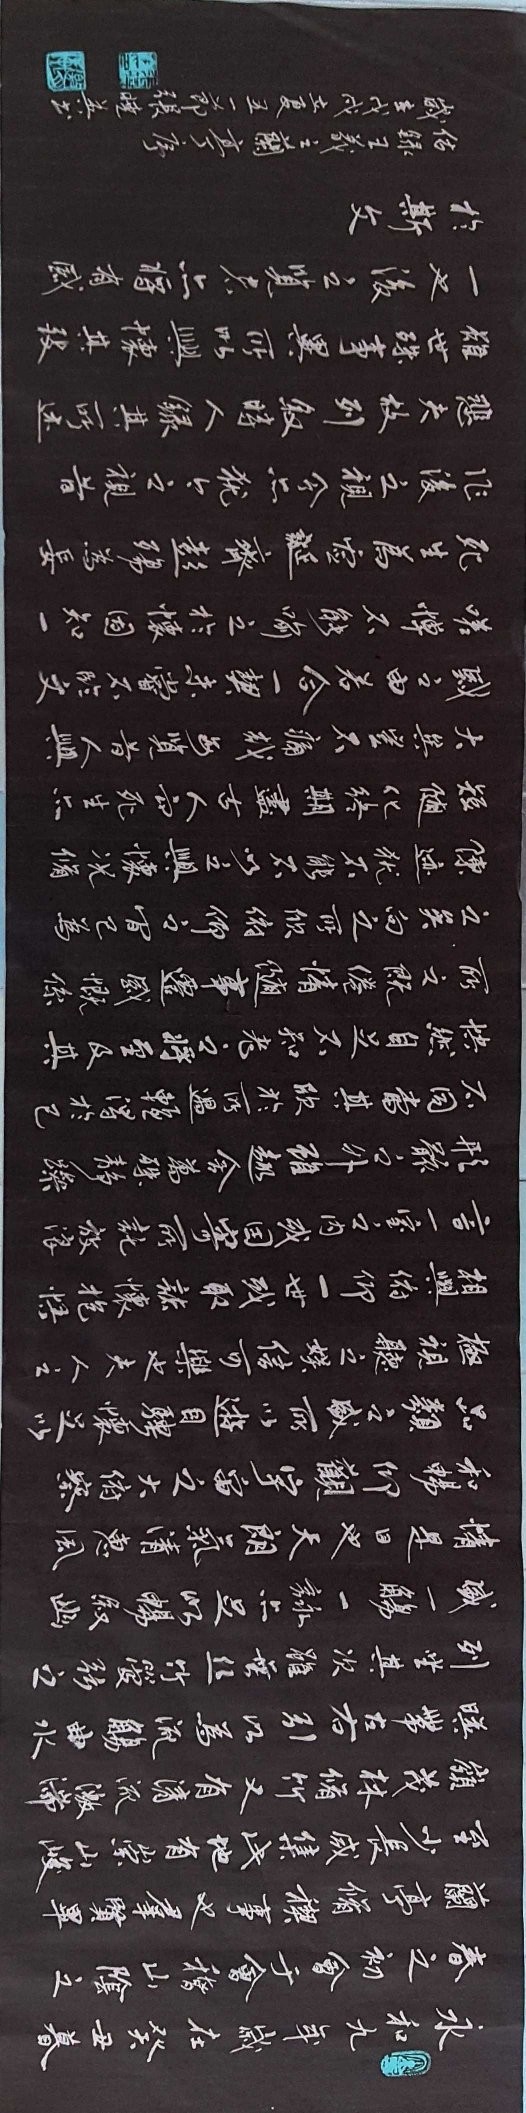 永和九年歲在癸丑暮
春之初會于會稽山陰之
蘭亭脩禊事也羣賢畢
至少長咸集此地有崇山峻
領茂林脩竹又有清流激湍
暎帶左右引以為流觴曲水
列坐其次雖無絲竹管弦之
盛一觴一詠亦足以暢敘幽
情是日也天朗氣清惠風
和暢仰觀宇宙之大俯察
品類之盛所以遊目騁懷足以
極視聽之娛信可樂也夫人之
相與俯仰一世或取諸懷抱悟
言一室之內或因寄所託放浪
形骸之外雖趣舍萬殊靜躁
不同當其欣於所遇暫得於己
快然自足不知老之將至及其
所之既倦情隨事遷感慨係
之矣向之所欣俯仰之間已為
陳迹猶不能不以之興懷況脩
短隨化終期盡古人云死生亦
大矣豈不痛哉每覽昔人興
感之由若合一契未嘗不臨文
嗟悼不能喻之於懷固知一
死生為虛誕齊彭殤為妄
作後之視今亦猶今之視昔
悲夫故列敘時人錄其所述
雖世殊事異所以興懷其致
一也後之覽者亦將有感
於斯文
錄王羲之蘭亭序
歲在戊戌立夏五一節張